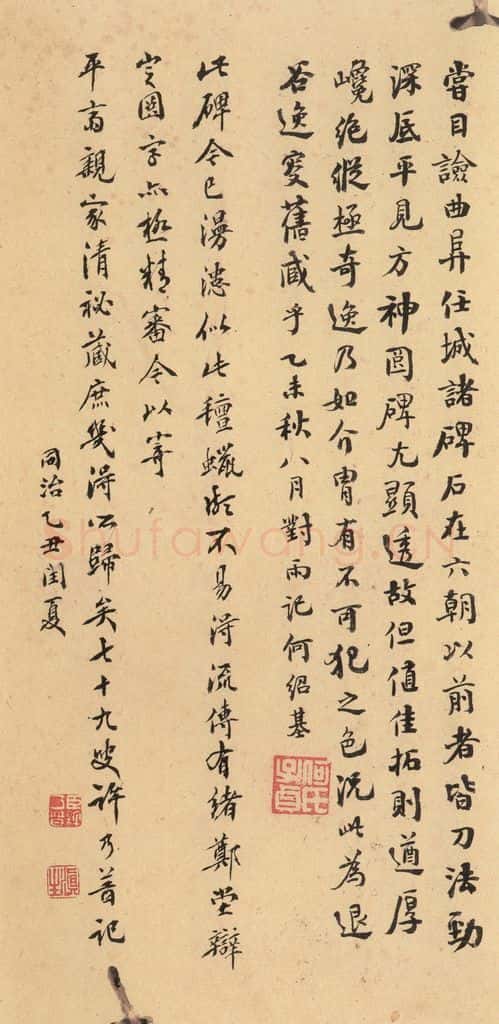 嘗目譣曲阜任城諸碑石在六朝以前者皆刀法勁
深底平見方神圓碑尤顯透故但值佳拓則遒厚
巉絶縱極奇逸乃如介冑有不可犯之色況此為退
谷逸叟舊藏乎乙未秋八月對雨記何紹基
何氏子貞
此碑今已漫漶似此氊蠟彌不易得流傳有緒鄭堂辯
定圓字亦極精審今以寄
平齋親家清祕藏庶幾得所歸矣七十九叟許乃普記
同治乙丑閏夏
Shufawang.CN